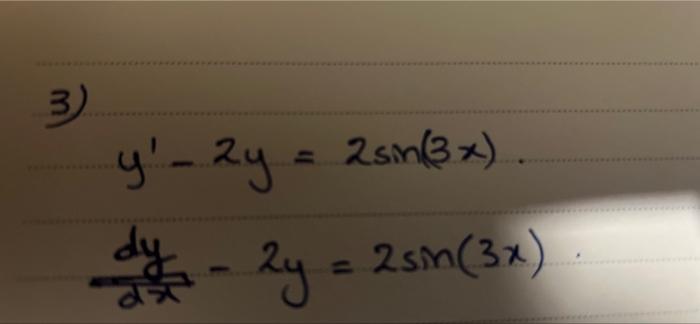 3)
y' - 2y = 2sin(3x) .
dy/dx - 2y = 2sin(3x) .